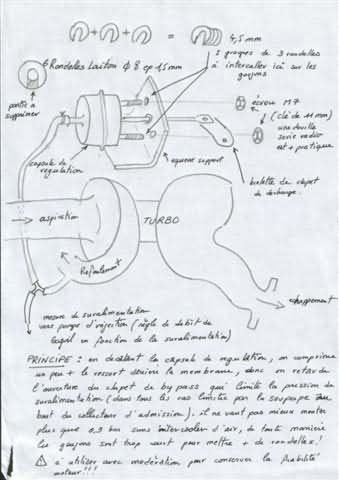 = 4,5 mm
3 groupes de 3 rondelles
à intercaler ici sur les
goujons
6 Rondelles Laiton ϕ 8 ep 1,5 mm
partie à
supprimer
écrou M7
(clé de 11 mm)
une douille
série radio
est + pratique
capsule de
régulation
équerre support
biellette du clapet de
décharge.
aspiration
TURBO
Refoulement
échappement
mesure de suralimentation
vers pompe d'injection (règle le débit de
gasoil en fonction de la suralimentation)
PRINCIPE : en décalant la capsule de régulation, on comprime
un peu + le ressort derrière la membrane, donc on retarde
l'ouverture du clapet de by pass qui limite la pression de
suralimentation (dans tous les cas limitée par la soupape au
bout du collecteur d'admission). il ne vaut pas mieux monter
plus que 0,9 bar sans intercooler d'air, de toute manière
les goujons sont trop court pour mettre + de rondelles !
⚠ à utiliser avec modération pour conserver la fiabilité
moteur !!!